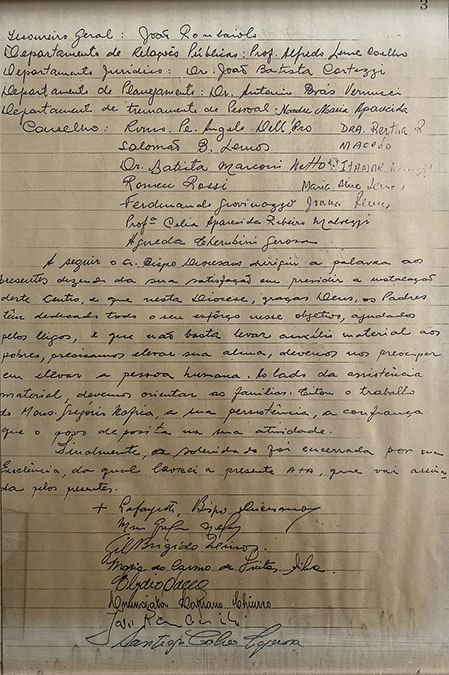 3
Tesoureiro Geral: João Rombaiolo
Departamento de Relações Públicas: Prof. Alfredo Leme Coelho
Departamento Jurídico: Dr. João Batista Cortezzi
Departamento de Planejamento: Dr. Antonio Brás
Departamento de treinamento de Pessoal: Madre Maria Aparecida
Conselho: Rvmo. Pe. Angelo Dell'Oro DRA. Bertha R
Salomão B. Lemos MACEDO
Dr. Batista Marconi Netto ITAMAR
Romeu Rossi Maria Lemos
Ferdinando Giovinazzo Joana
Profª Celia Aparecida Ribeiro Malvezzi
Agueda Cherubini Gerosa
A seguir o Sr. Bispo Diocesano dirigiu a palavra aos
presentes dizendo da sua satisfação em presidir a instalação
deste Centro, e que nesta Diocese, graças Deus, os Padres
têm dedicado todo o seu esfôrço nesse objetivo, ajudados
pelos leigos, e que não basta levar auxílio material aos
pobres, precisamos elevar sua alma, devemos nos preocupar
em elevar a pessoa humana. Ao lado da assistência
material, devemos orientar as famílias. Citou o trabalho
do Mons. Gregorio, a sua persistência, a confiança
que o povo deposita na sua atividade.
Finalmente, a solenidade foi encerrada por sua
Excelência, da qual lavrei a presente ATA, que vai assina-
da pelos presentes.
+ Lafayette, Bispo Diocesano
Gil Brigido Lemos
Maria do Carmo de Freitas Silva
Anunciata
José
Santiago